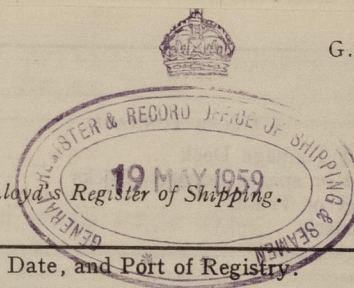 G.
GENERAL REGISTER & RECORD OFFICE OF SHIPPING & SEAMEN
19 MAY 1959
Lloyd's Register of Shipping.
Date, and Port of Registry.